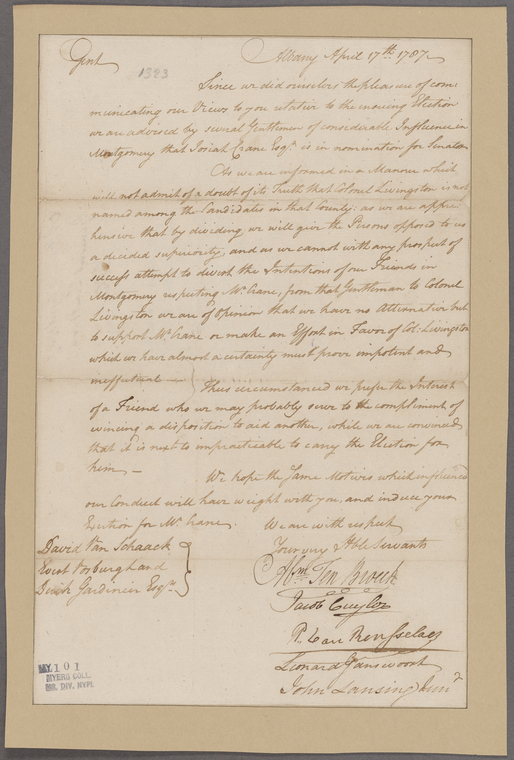 Gent
1323
Albany April 17th 1787
Since we did ourselves the pleasure of com
municating our Views to you relative to the ensuing Election
we are advised by several Gentlemen of considerable Influence in
Montgomery that Josiah Crane Esqr. is in nomination for Senator
As we are informed in a Manner which
will not admit of a doubt of its Truth that Colonel Livingston is not
named among the Candidates in that County: as we are appre
hensive that by dividing we will give the Persons opposed to us
a decided superiority, and as we cannot with any prospect of
success attempt to divert the Intentions of our Friends in
Montgomery respecting Mr. Crane, from that Gentleman to Colonel
Livingston we are of opinion that we have no Alternative but
to support Mr. Crane or make an Effort in Favor of Col: Livingston
which we have almost a certainty must prove impotent and
ineffectual —
Thus circumstanced we prefer the Interest
of a Friend who we may probably serve to the compliment of
evincing a disposition to aid another, while we are convinced
that it is next to impracticable to carry the Election for
him —
We hope the same Motives which influenced
our Conduct will have weight with you and induce your
Exertion for Mr. Crane.
We are with respect
Your very Hble Servants
Abm Ten Broeck
Jacob Cuyler
P. Van Rensselaer
Leonard Gansevoort
John Lansing Junr
David Van Schaack
Evert Vosburgh and
Dirck Gardinier Esqrs
MY 101
MYERS COLL.
MS. DIV. NYPL